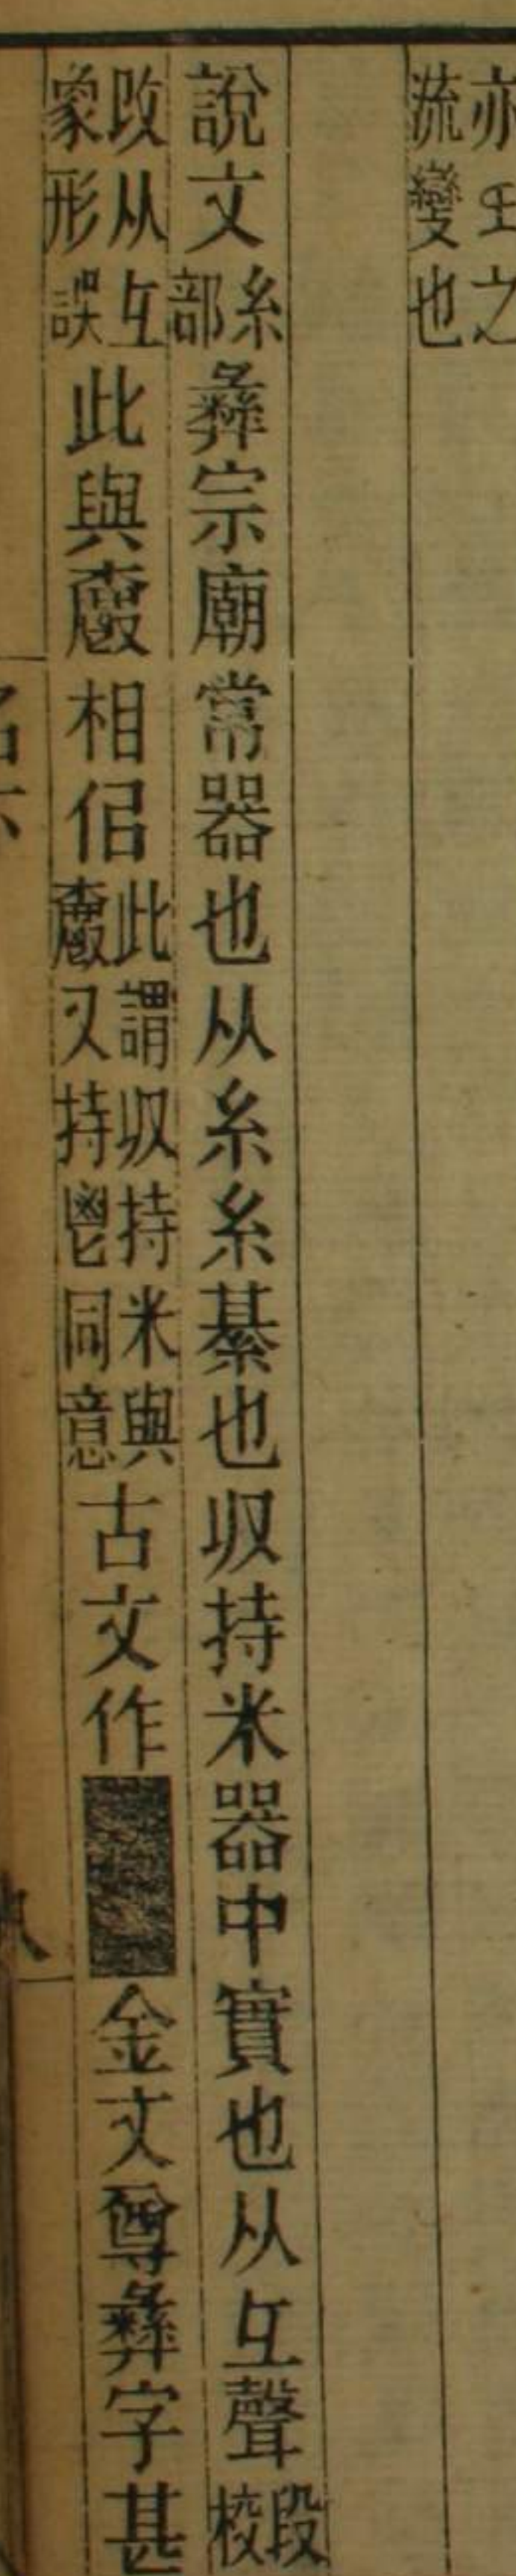 亦之
流變也
說文糸部彝宗廟常器也从糸糸綦也収持米器中實也从彑聲段校
改从彑象形誤此與相佀此謂収持米與又持鬯同意古文作金文尊彝字甚